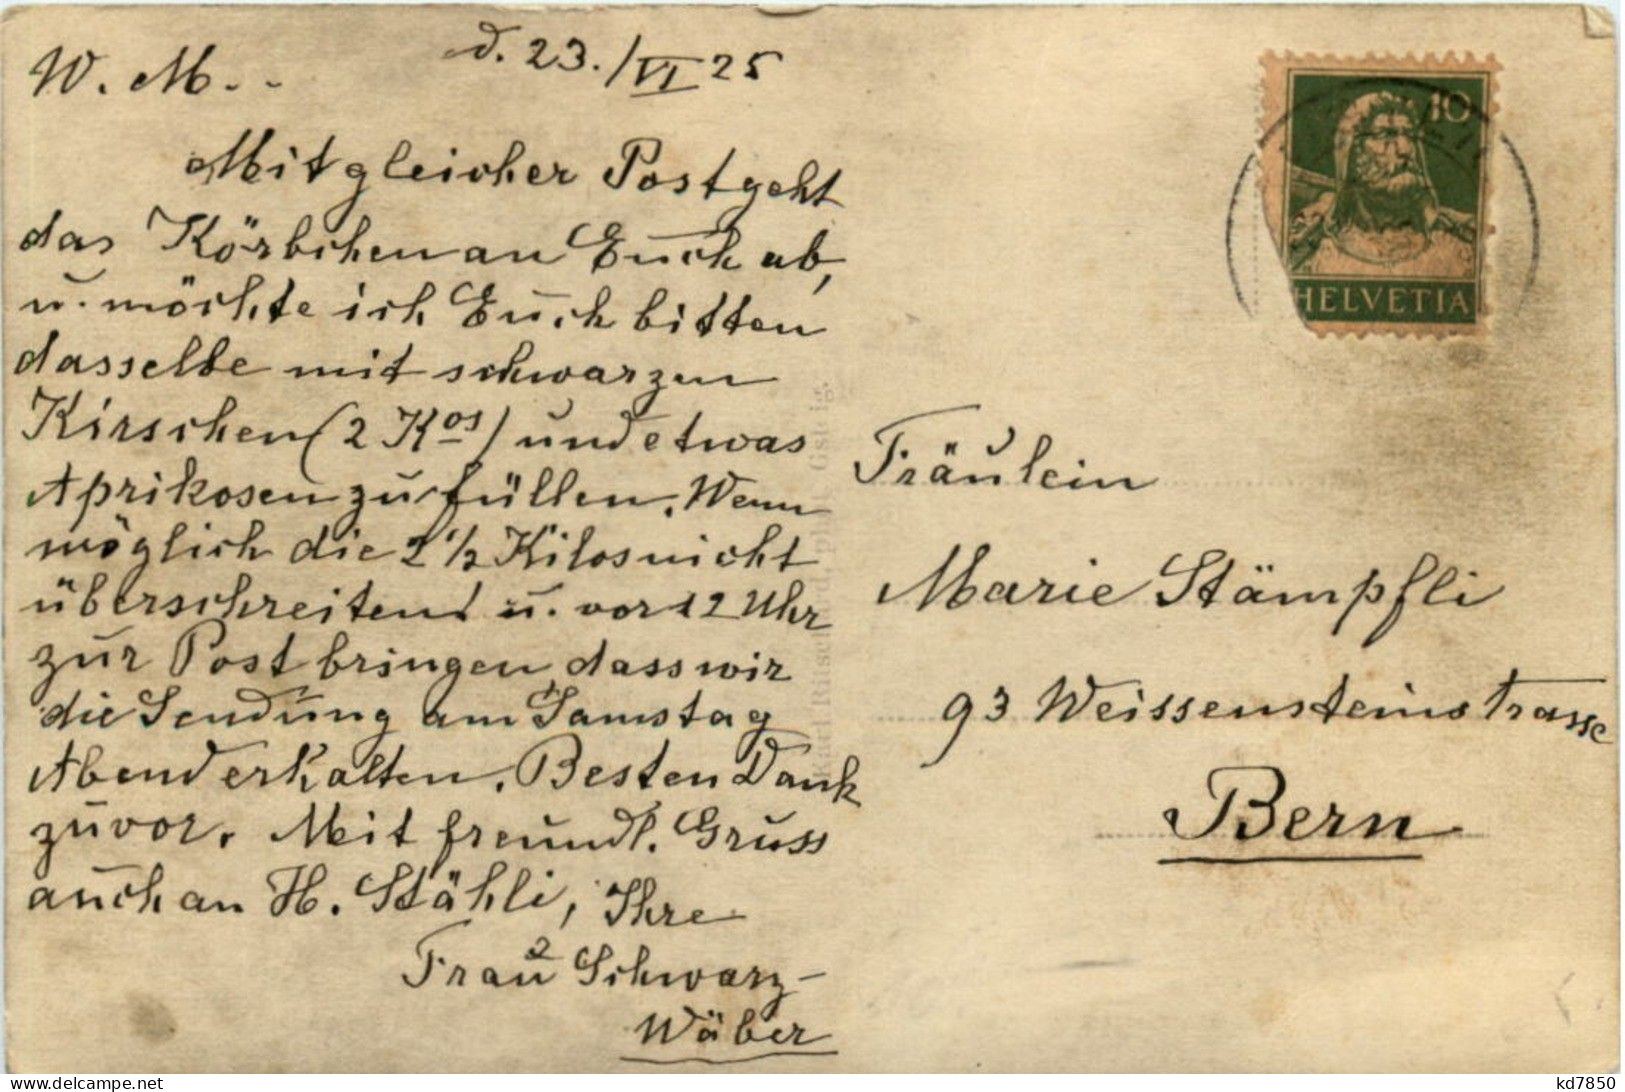 W. M. . -
d. 23./VI 25
Mit gleicher Post geht
das Körbchen an Euch ab,
u. möchte ich Euch bitten
dasselbe mit schwarzen
Kirschen (2 Kos) und etwas
Aprikosen zu füllen. Wenn
möglich die 2 1/2 Kilos nicht
überschreiten! u. vor 12 Uhr
zur Post bringen dass wir
die Sendung am Samstag
Abend erhalten. Besten Dank
zuvor. Mit freundl. Gruss
auch an H. Stähli, Ihre
Frau Schwarz-
Wäber
10
HELVETIA
Fräulein
Marie Stämpfli
93 Weissensteinstrasse
Bern
kd7850